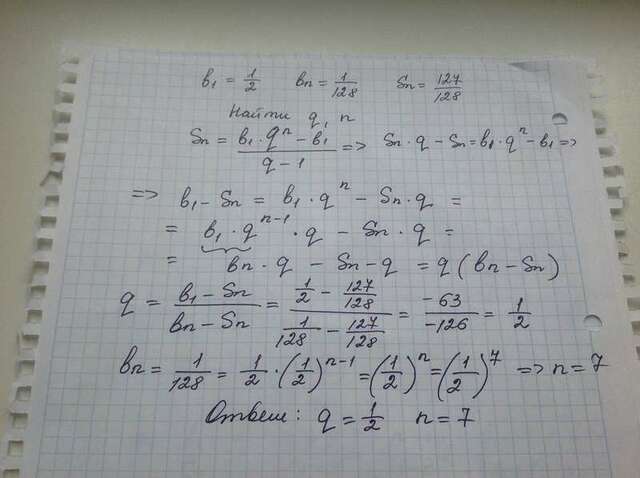 b₁ = 1/2   bₙ = 1/128   Sₙ = 127/128
Найти q, n
Sₙ = (b₁·qⁿ - b₁)/(q - 1) => Sₙ·q - Sₙ = b₁·qⁿ - b₁ =>
=> b₁ - Sₙ = b₁·qⁿ - Sₙ·q =
= b₁·qⁿ⁻¹·q - Sₙ·q =
= bₙ·q - Sₙ-q = q(bₙ - Sₙ)
q = (b₁ - Sₙ)/(bₙ - Sₙ) = (1/2 - 127/128)/(1/128 - 127/128) = -63/-126 = 1/2
bₙ = 1/128 = 1/2·(1/2)ⁿ⁻¹ = (1/2)ⁿ = (1/2)⁷ => n = 7
Ответ: q = 1/2   n = 7